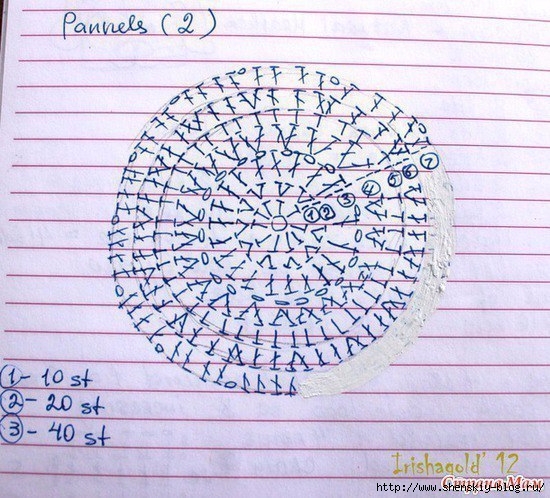 Pannels (2)
① ② ③ ④ ⑤ ⑥ ⑦
① - 10 st
② - 20 st
③ - 40 st
Irishagold' 12
Страна Мам
http://www.shenskiy-blog.ru/